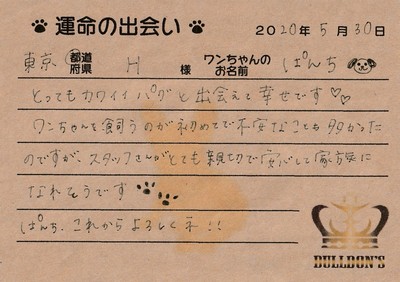 運命の出会い 2020年5月30日
東京 都道府県 H 様 ワンちゃんのお名前 ぱんち
とってもカワイイパグと出会えて幸せです♡♡
ワンちゃんを飼うのが初めてで不安なことも多かった
のですが、スタッフさんがとても親切で安心して家族に
なれそうです
ぱんち、これからよろしくネ!!
BULLDON'S